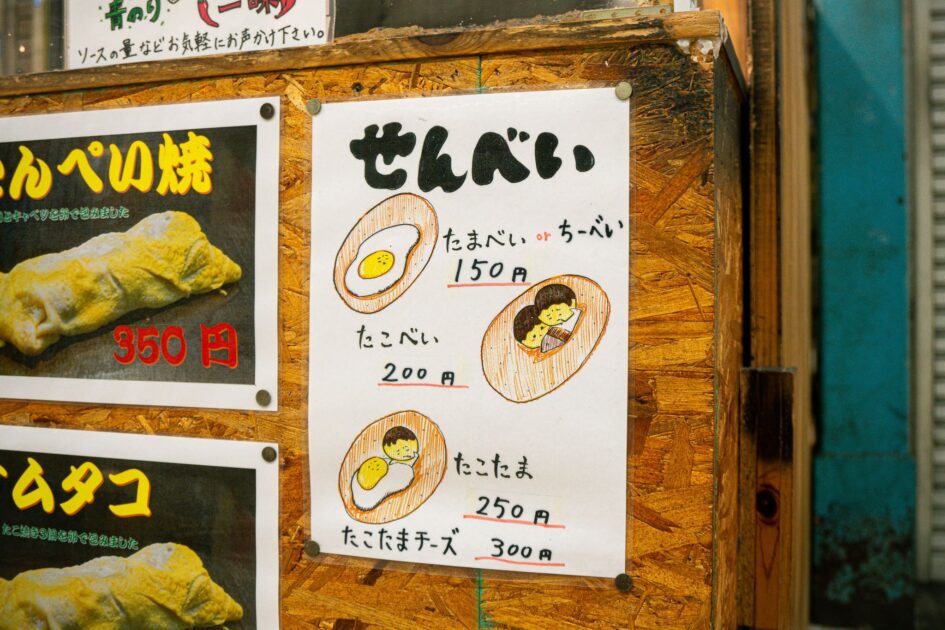 青のり 一味
ソースの量などお気軽にお声かけ下さい。
んぺい焼
キャベツを卵で包みました
350円
ムタコ
たこ焼き3個を卵で包みました
せんべい
たまべい or ちーべい
150円
たこべい
200円
たこたま
250円
たこたまチーズ 300円